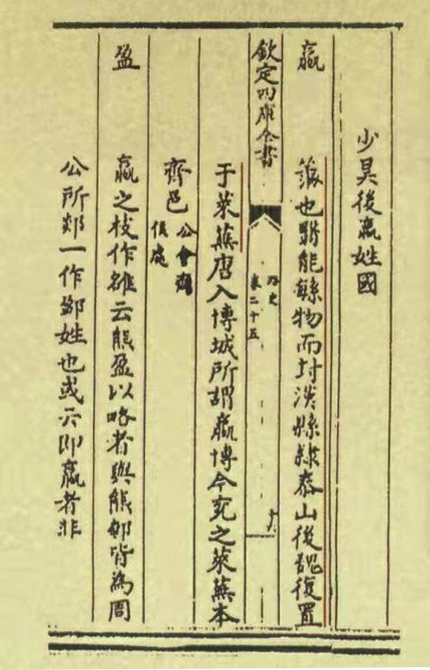 少昊後嬴姓國
嬴 也翳能緐物而封漢縣隸泰山後魏復置
欽定四庫全書
路史
卷二十五
于萊蕪唐入博城所謂嬴博今兗之萊蕪本
齊邑 公會齊
侯處
盈 嬴之枝作雒云熊盈以略者與熊 皆為周
公所 一作 姓也或云即嬴者非